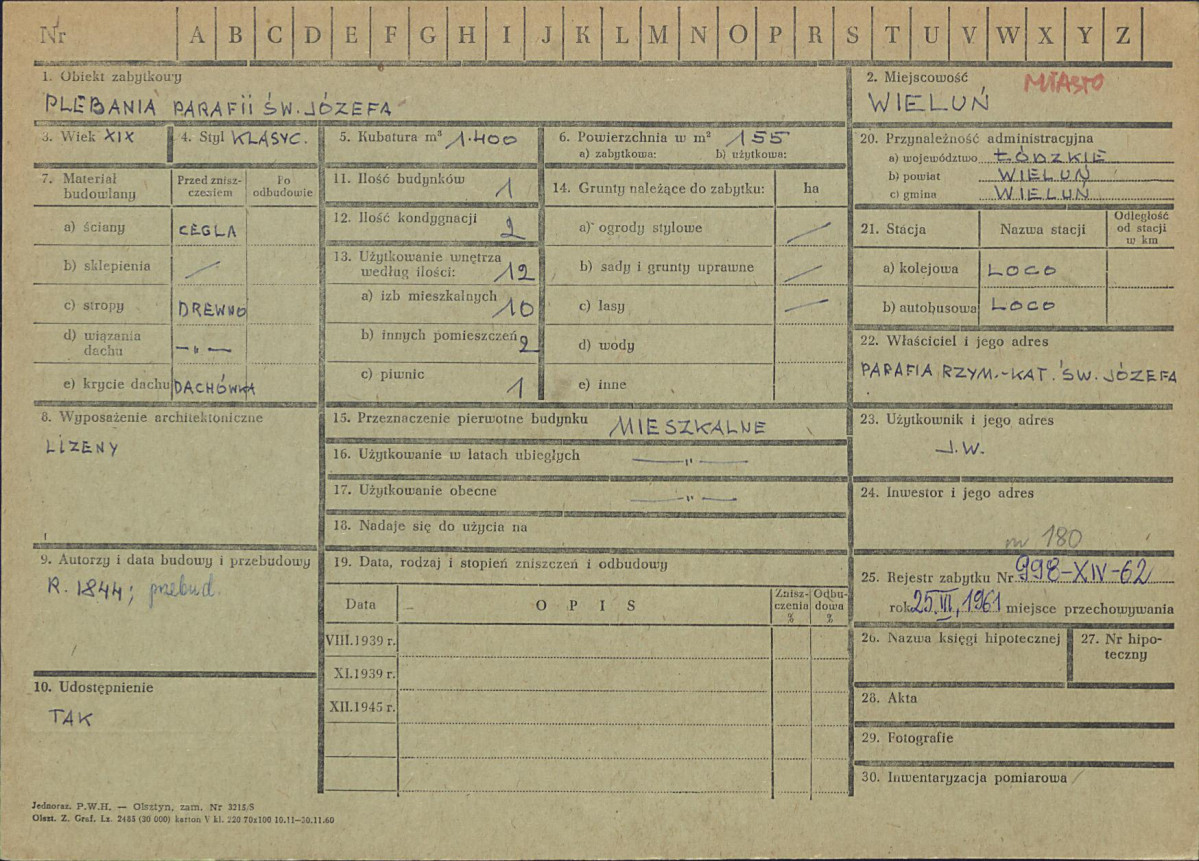 Nr A B C D E F G H I J K L M N O P R S T U V W X Y Z
1. Obiekt zabytkowy
PLEBANIA PARAFII ŚW. JÓZEFA
2. Miejscowość MIASTO
WIELUŃ
3. Wiek XIX
4. Styl KLASYC.
5. Kubatura m³ 1.400
6. Powierzchnia w m² 155
a) zabytkowa: b) użytkowa:
20. Przynależność administracyjna
a) województwo ŁÓDZKIE
b) powiat WIELUŃ
c) gmina WIELUŃ
7. Materiał budowlany
Przed znisz-
czeniem
Po
odbudowie
a) ściany CEGŁA
b) sklepienia /
c) stropy DREWNO
d) wiązania
dachu —„—
e) krycie dachu DACHÓWKA
11. Ilość budynków 1
12. Ilość kondygnacji 2
13. Użytkowanie wnętrza
według ilości: 12
a) izb mieszkalnych 10
b) innych pomieszczeń 2
c) piwnic 1
14. Grunty należące do zabytku: ha
a) ogrody stylowe /
b) sady i grunty uprawne /
c) lasy /
d) wody
e) inne
21. Stacja Nazwa stacji
Odległość
od stacji
w km
a) kolejowa LOCO
b) autobusowa LOCO
22. Właściciel i jego adres
PARAFIA RZYM.-KAT. ŚW. JÓZEFA
8. Wyposażenie architektoniczne
LIZENY
15. Przeznaczenie pierwotne budynku MIESZKALNE
16. Użytkowanie w latach ubiegłych —„—
17. Użytkowanie obecne —„—
18. Nadaje się do użycia na
23. Użytkownik i jego adres
J.W.
24. Inwestor i jego adres
nr 180
9. Autorzy i data budowy i przebudowy
R. 1844; przebud.
19. Data, rodzaj i stopień zniszczeń i odbudowy
Data OPIS
Znisz-
czenia
%
Odbu-
dowa
%
VIII.1939 r.
XI.1939 r.
XII.1945 r.
25. Rejestr zabytku Nr 998-XIV-62
rok 25.VI, 1961 miejsce przechowywania
26. Nazwa księgi hipotecznej
27. Nr hipo-
teczny
10. Udostępnienie
TAK
28. Akta
29. Fotografie
30. Inwentaryzacja pomiarowa
Jednoraz. P.W.H. — Olsztyn, zam. Nr 3215/S
Olszt. Z. Graf. Lz. 2485 (30 000) karton V kl. 220 70x100 10.11—30.11.60